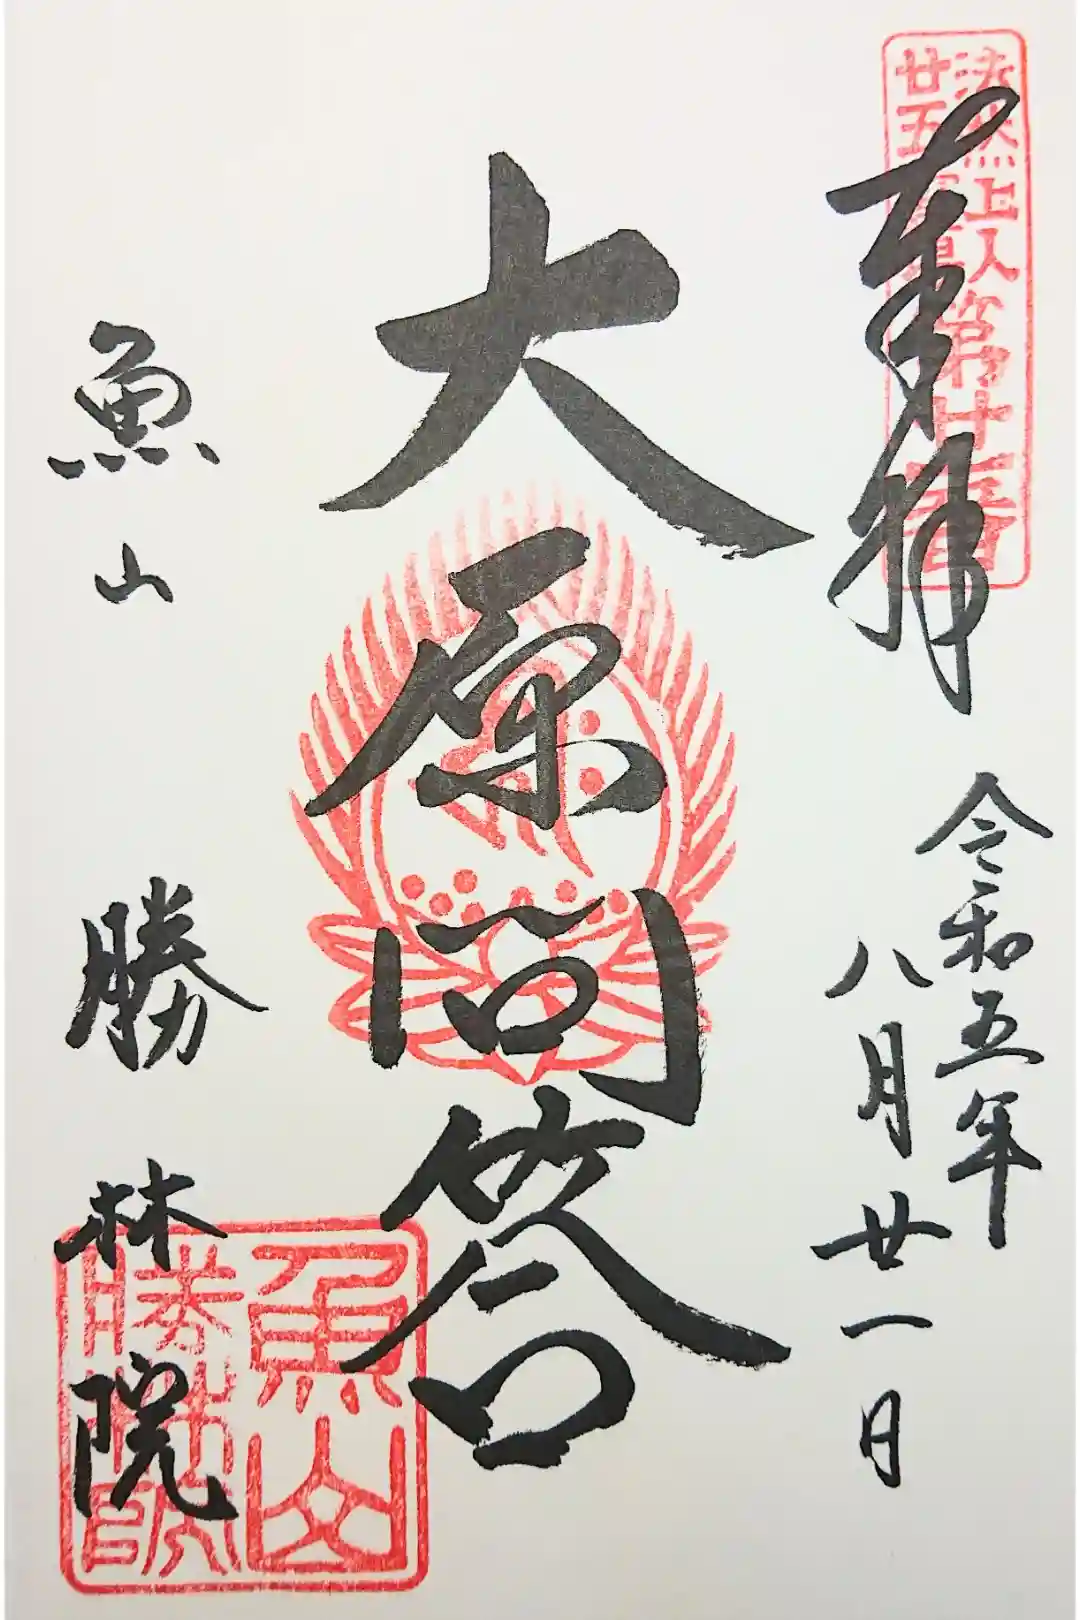 法然上人
廿五霊場
第廿一番
奉拝
令和五年
八月廿一日
大原问答
魚山
勝林院
魚山
勝林院